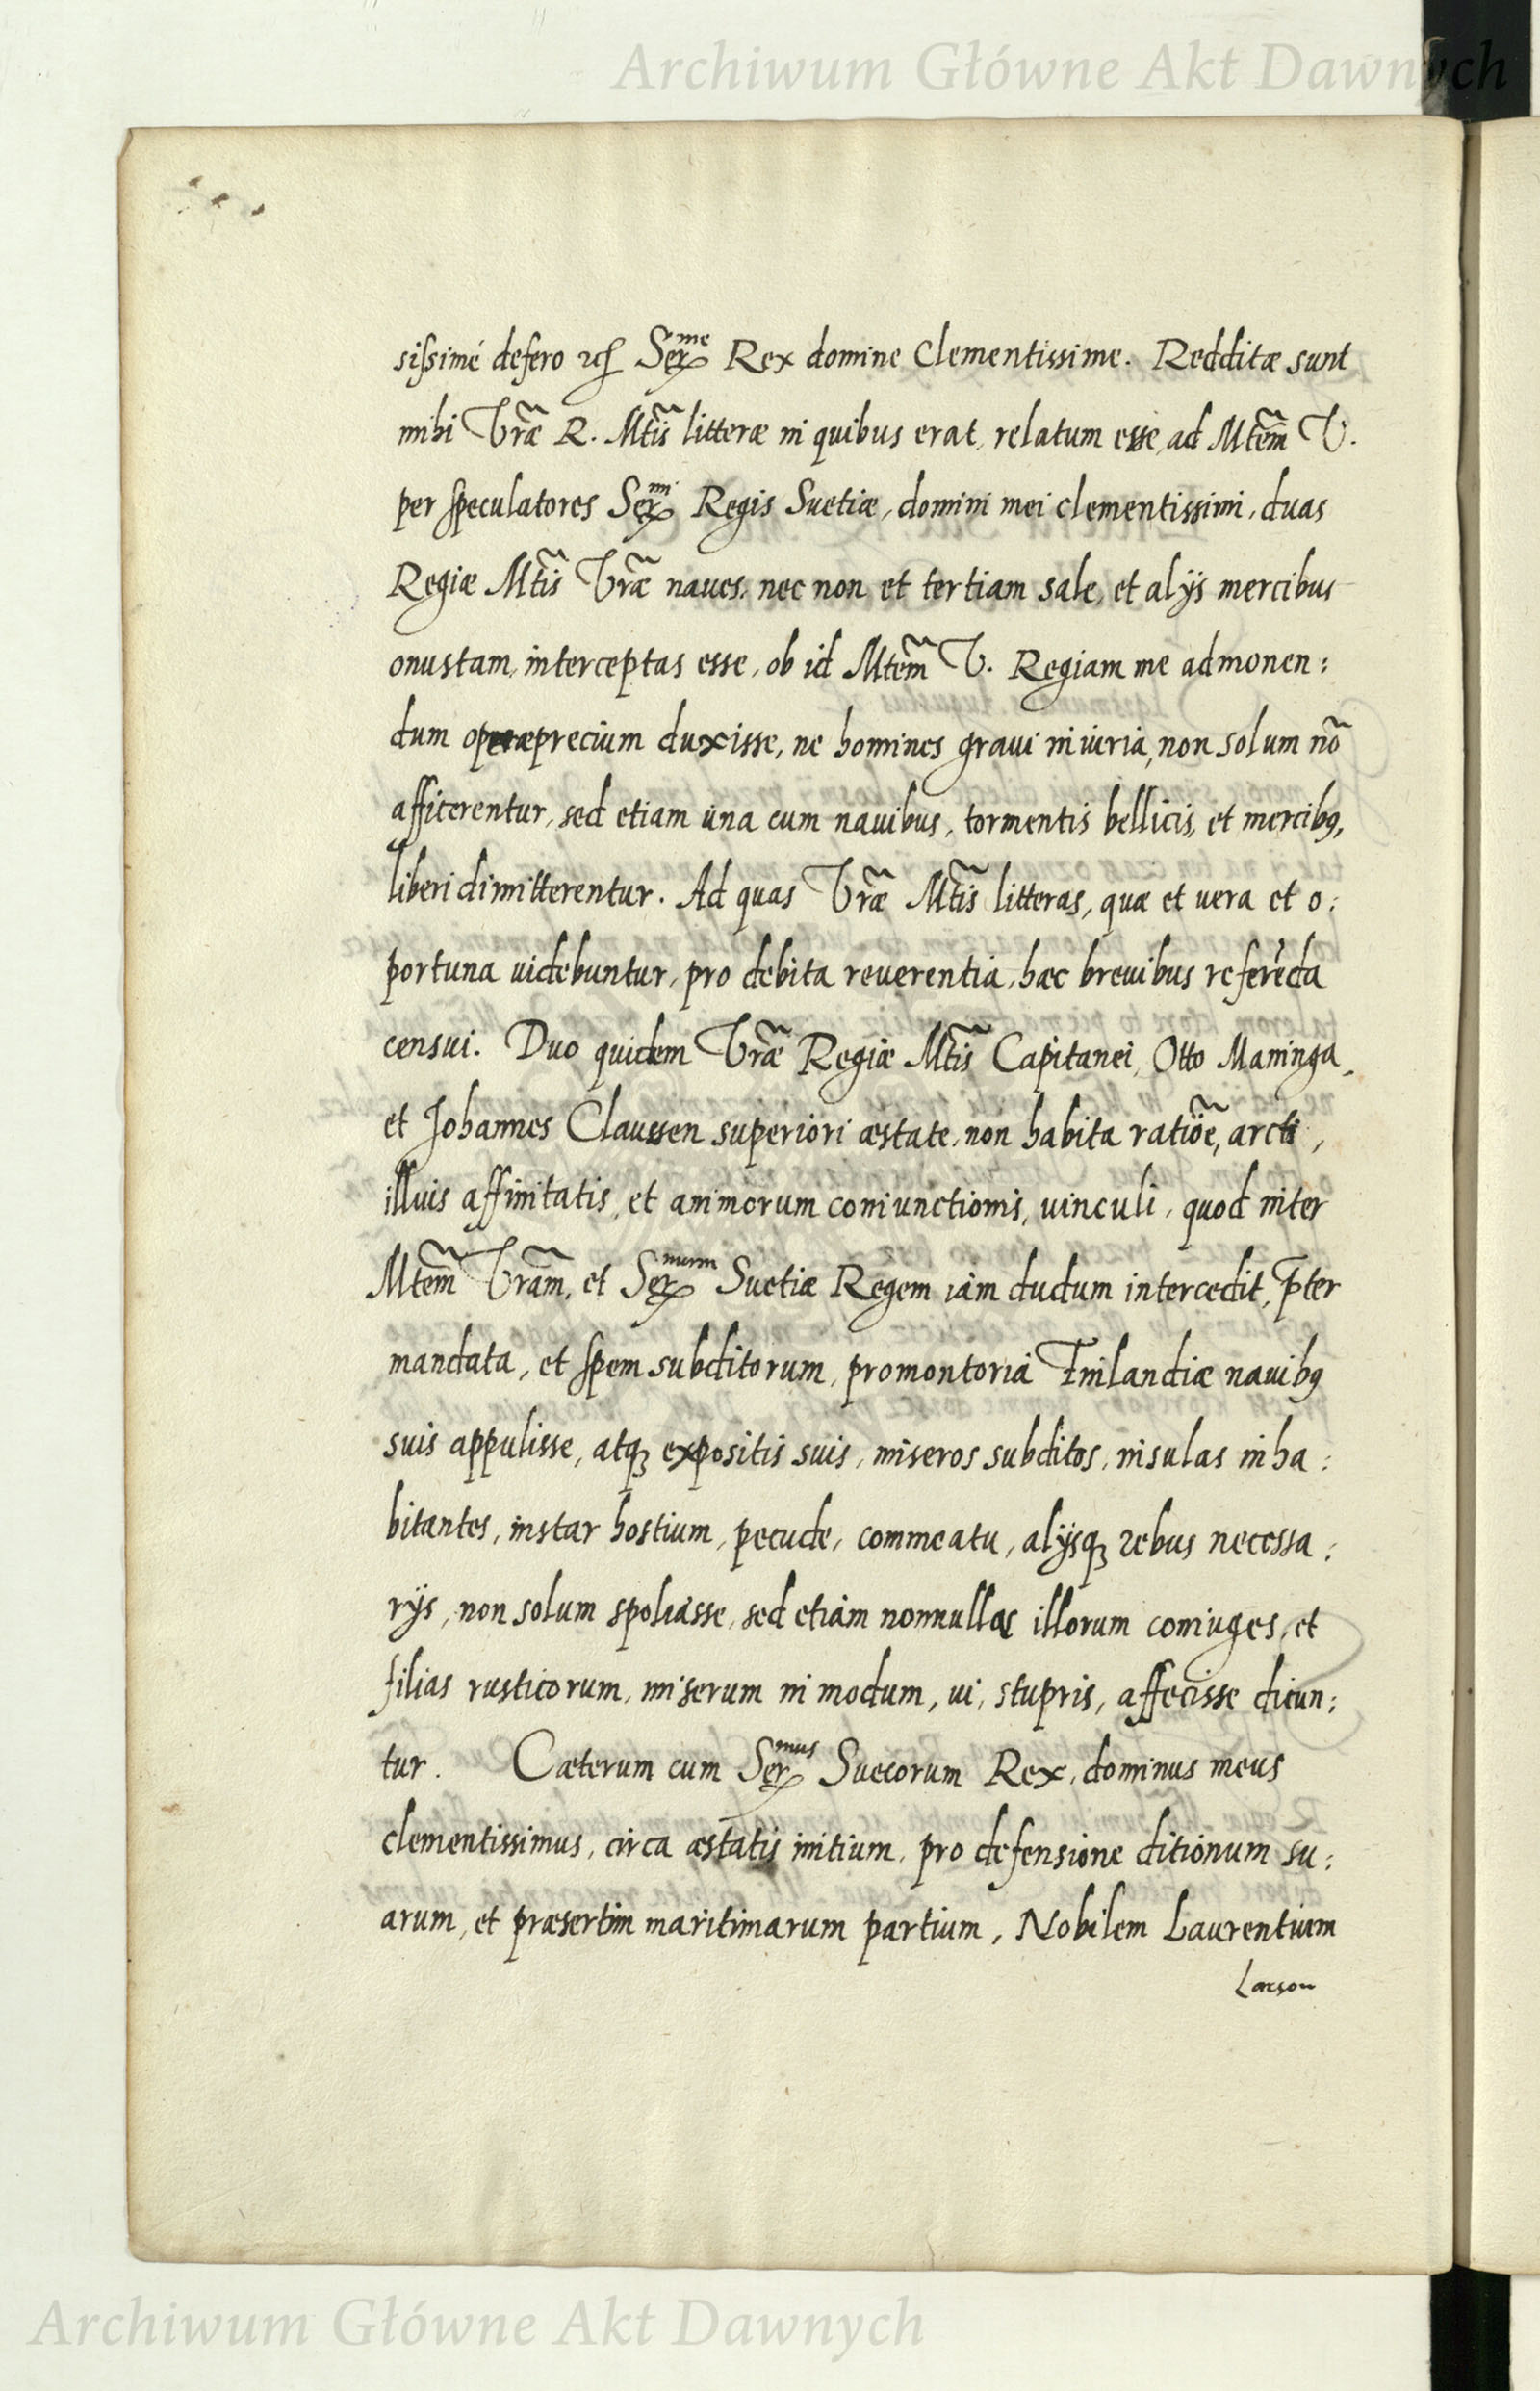 Archiwum Główne Akt Dawnych
sissimé defero Ser.me Rex domine Clementissime. Redditæ sunt
mihi Vr̃æ R. Mt̃is litteræ in quibus erat, relatum esse, ad Mtem̃ V.
per speculatores Ser.mi Regis Suetiæ, domini mei clementissimi, duas
Regiæ Mt̃is Vr̃æ naues, nec non et tertiam sale, et alijs mercibus
onustam, interceptas esse, ob id Mtem̃ V. Regiam me admonen:
dum operæprecium duxisse, ne homines graui iniuria, non solum nõ
afficerentur, sed etiam una cum nauibus, tormentis bellicis, et mercibꝰ,
liberi dimitterentur. Ad quas Vr̃æ Mt̃is litteras, quæ et uera et o:
portuna uidebuntur, pro debita reuerentia, hæc breuibus referẽda
censui. Duo quidem Vr̃æ Regiæ Mt̃is Capitanei, Otto Maninga,
et Johannes Claussen superiori æstate, non habita ratiõe, arcti,
illius affinitatis, et animorum coniunctionis, uinculi, quod inter
Mtem̃ Vram̃, et Ser.mum Suetiæ Regem iàm dudum intercedit, p̃ter
mandata, et spem subditorum, promontoria Finlandiæ nauibꝰ
suis appulisse, atqꝫ expositis suis, miseros subditos, insulas inha:
bitantes, instar hostium, pecude, commeatu, alijsqꝫ rebus necessa:
rijs, non solum spoliasse, sed etiàm nonnullas illorum coniuges, et
filias rusticorum, miserum in modum, ui, stupris, affecisse dicun:
tur. Cæterum cum Ser.mus Suecorum Rex, dominus meus
clementissimus, circa æstatis initium, pro defensione ditionum su:
arum, et præsertim maritimarum partium, Nobilem Laurentium
Larson
Archiwum Główne Akt Dawnych